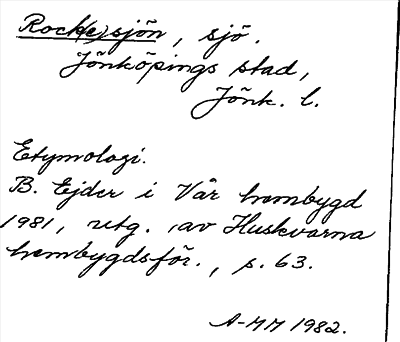 Rock(e)sjön, sjö.
Jönköpings stad,
Jönk. l.
Etymologi.
B. Ejder i Vår hembygd
1981, utg. av Huskvarna
hembygdsför., s. 63.
A-MM 1982.